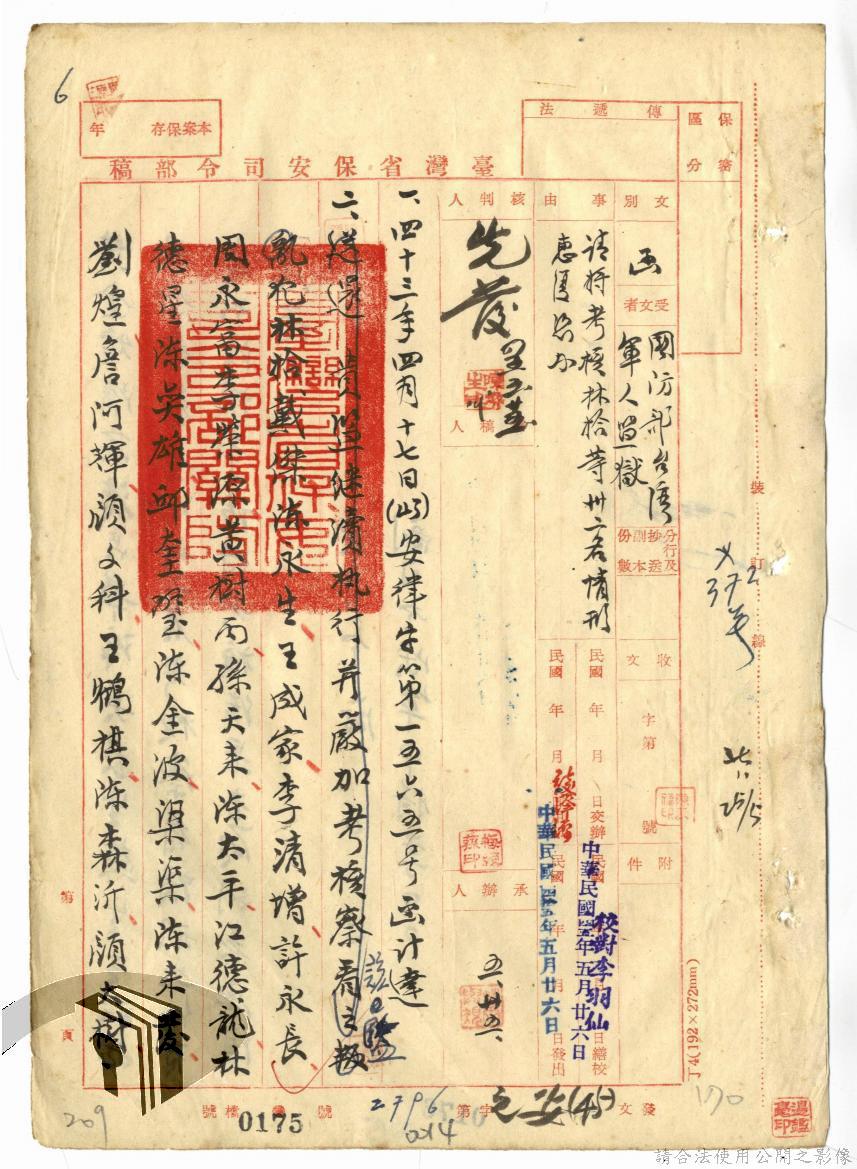 6
本案保存
年
傳遞法
保密區分
臺灣省保安司令部稿
文別
函
受文者
國防部台灣
軍人監獄
分行及抄送副本份數
事由
請將考核林拾等卅二名情形
惠復
核判人
先發
稿人
收文
字第
號
附件
民國 年 月 日交辦
民國 年 月
日繕校
日發出
校對李羽仙
中華民國四十五年五月廿六日
中華民國四十五年五月廿六日
承辦人
一、四十三年四月十七日(43)安律字第一五六五號函計達
二、送還 貴監繼續執行并嚴加考核察看之叛
亂犯林拾、戴傑、陈永生、王成家、李清增、許永長、
周永富、李榮源、黃樹丙、孫天来、陈太平、江德龍、林
德星、陈英雄、邱奎璧、陈金波、梁渠、陈来發、
劉煌、詹阿輝、顏文科、王鵬棋、陈森沂、顏大樹、
裝
訂
線
372号
第
頁
丁4(192×272mm)
發文
(45)
字第
2796
號
0175
檔號
014
209
170
請合法使用公開之影像